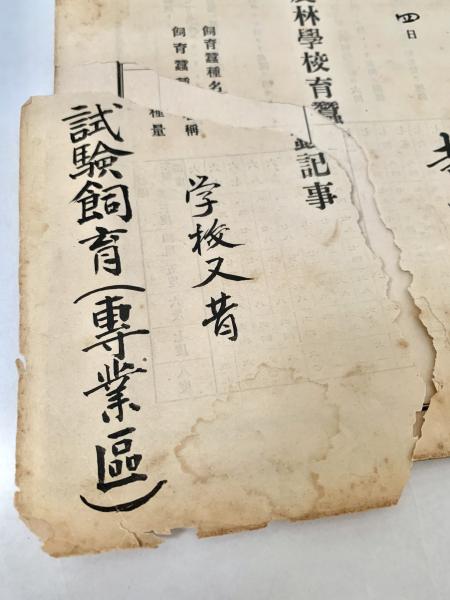 四日
林學校育蠶
記事
飼育蠶種名
稱
飼育蠶
種量
学校又昔
試験飼育(専業區)